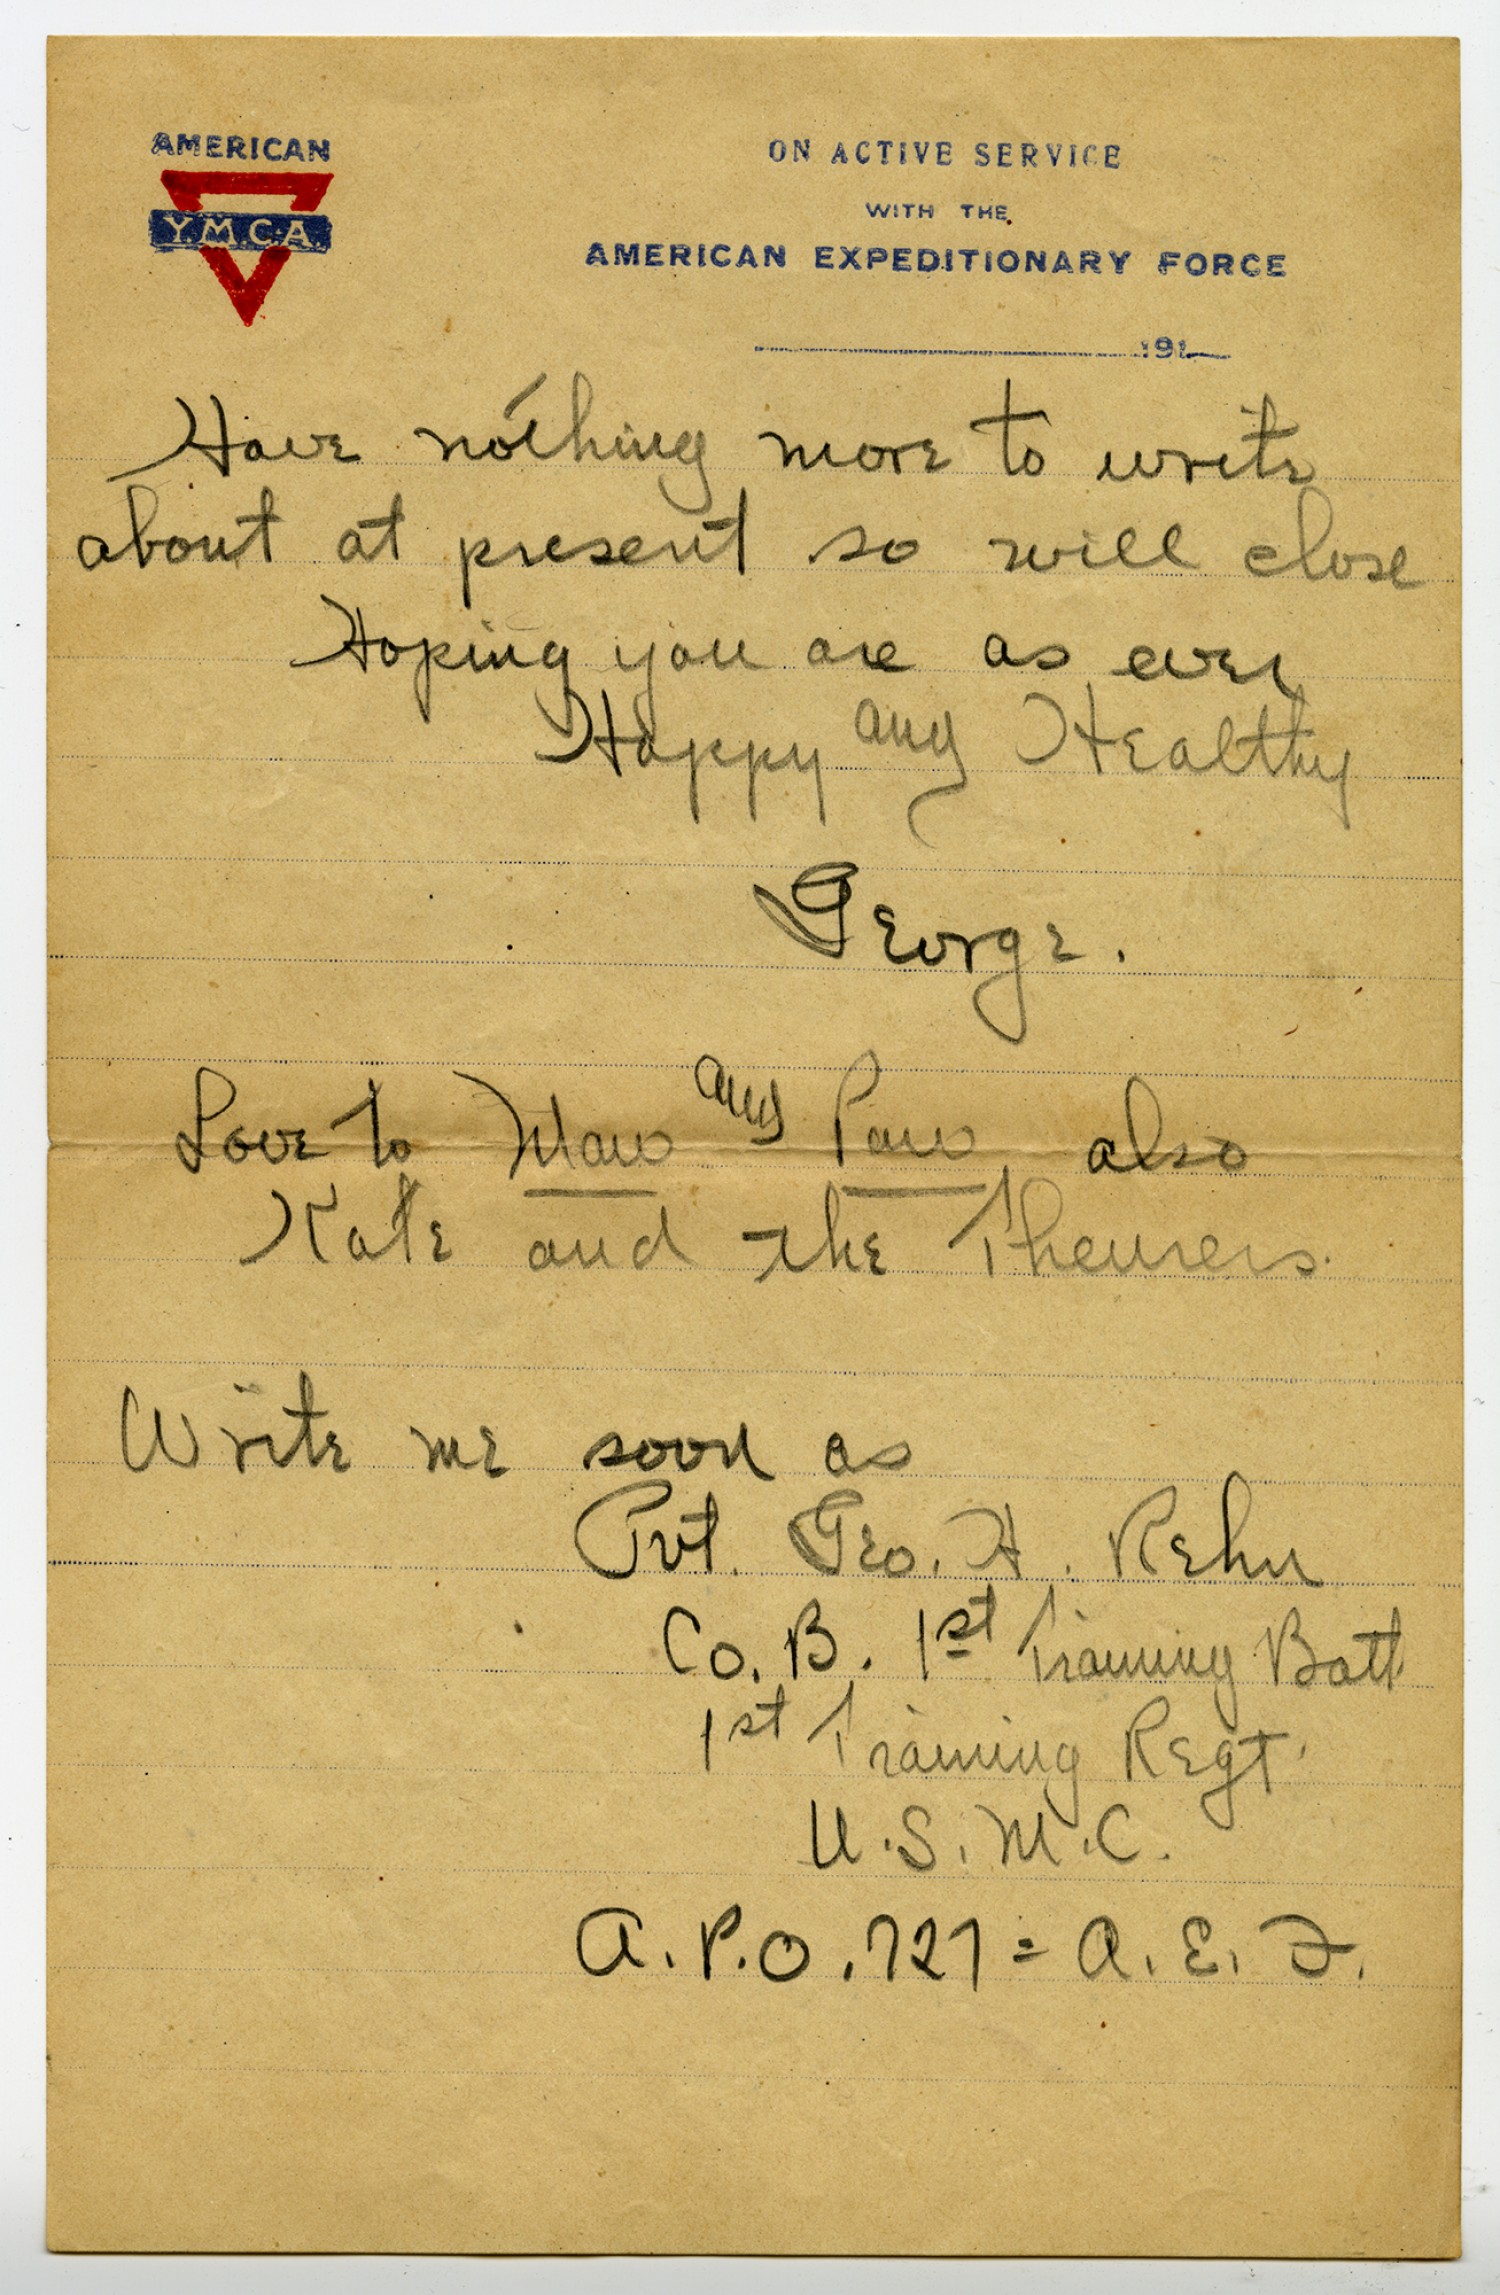 AMERICAN
Y.M.C.A.
ON ACTIVE SERVICE
WITH THE
AMERICAN EXPEDITIONARY FORCE
191
Have nothing more to write
about at present so will close
Hoping you are as ever
Happy and Healthy
George.
Love to Maw and Paw also
Kate and the Theurers.
Write me soon as
Pvt. Geo. H. Rehm
Co. B. 1st Training Batt.
1st Training Regt.
U.S.M.C.
A.P.O. 727 = A.E.F.